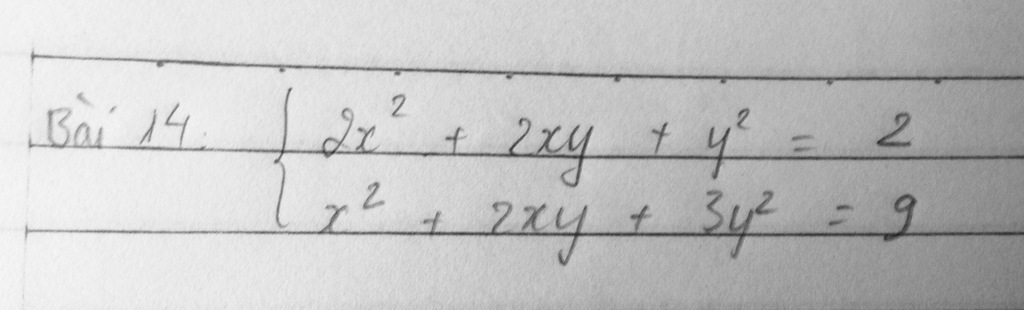 Bài 14: { 2x² + 2xy + y² = 2
x² + 2xy + 3y² = 9